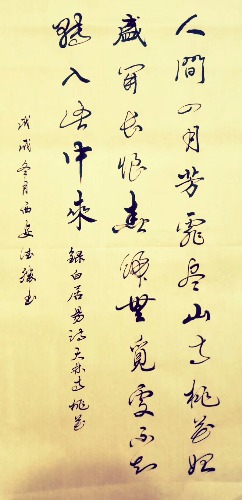 人間四月芳霏盡山寺桃花始
盛開長恨春歸無覓處不知
轉入此中來 錄白居易詩大林寺桃花
戊戌冬月西安書